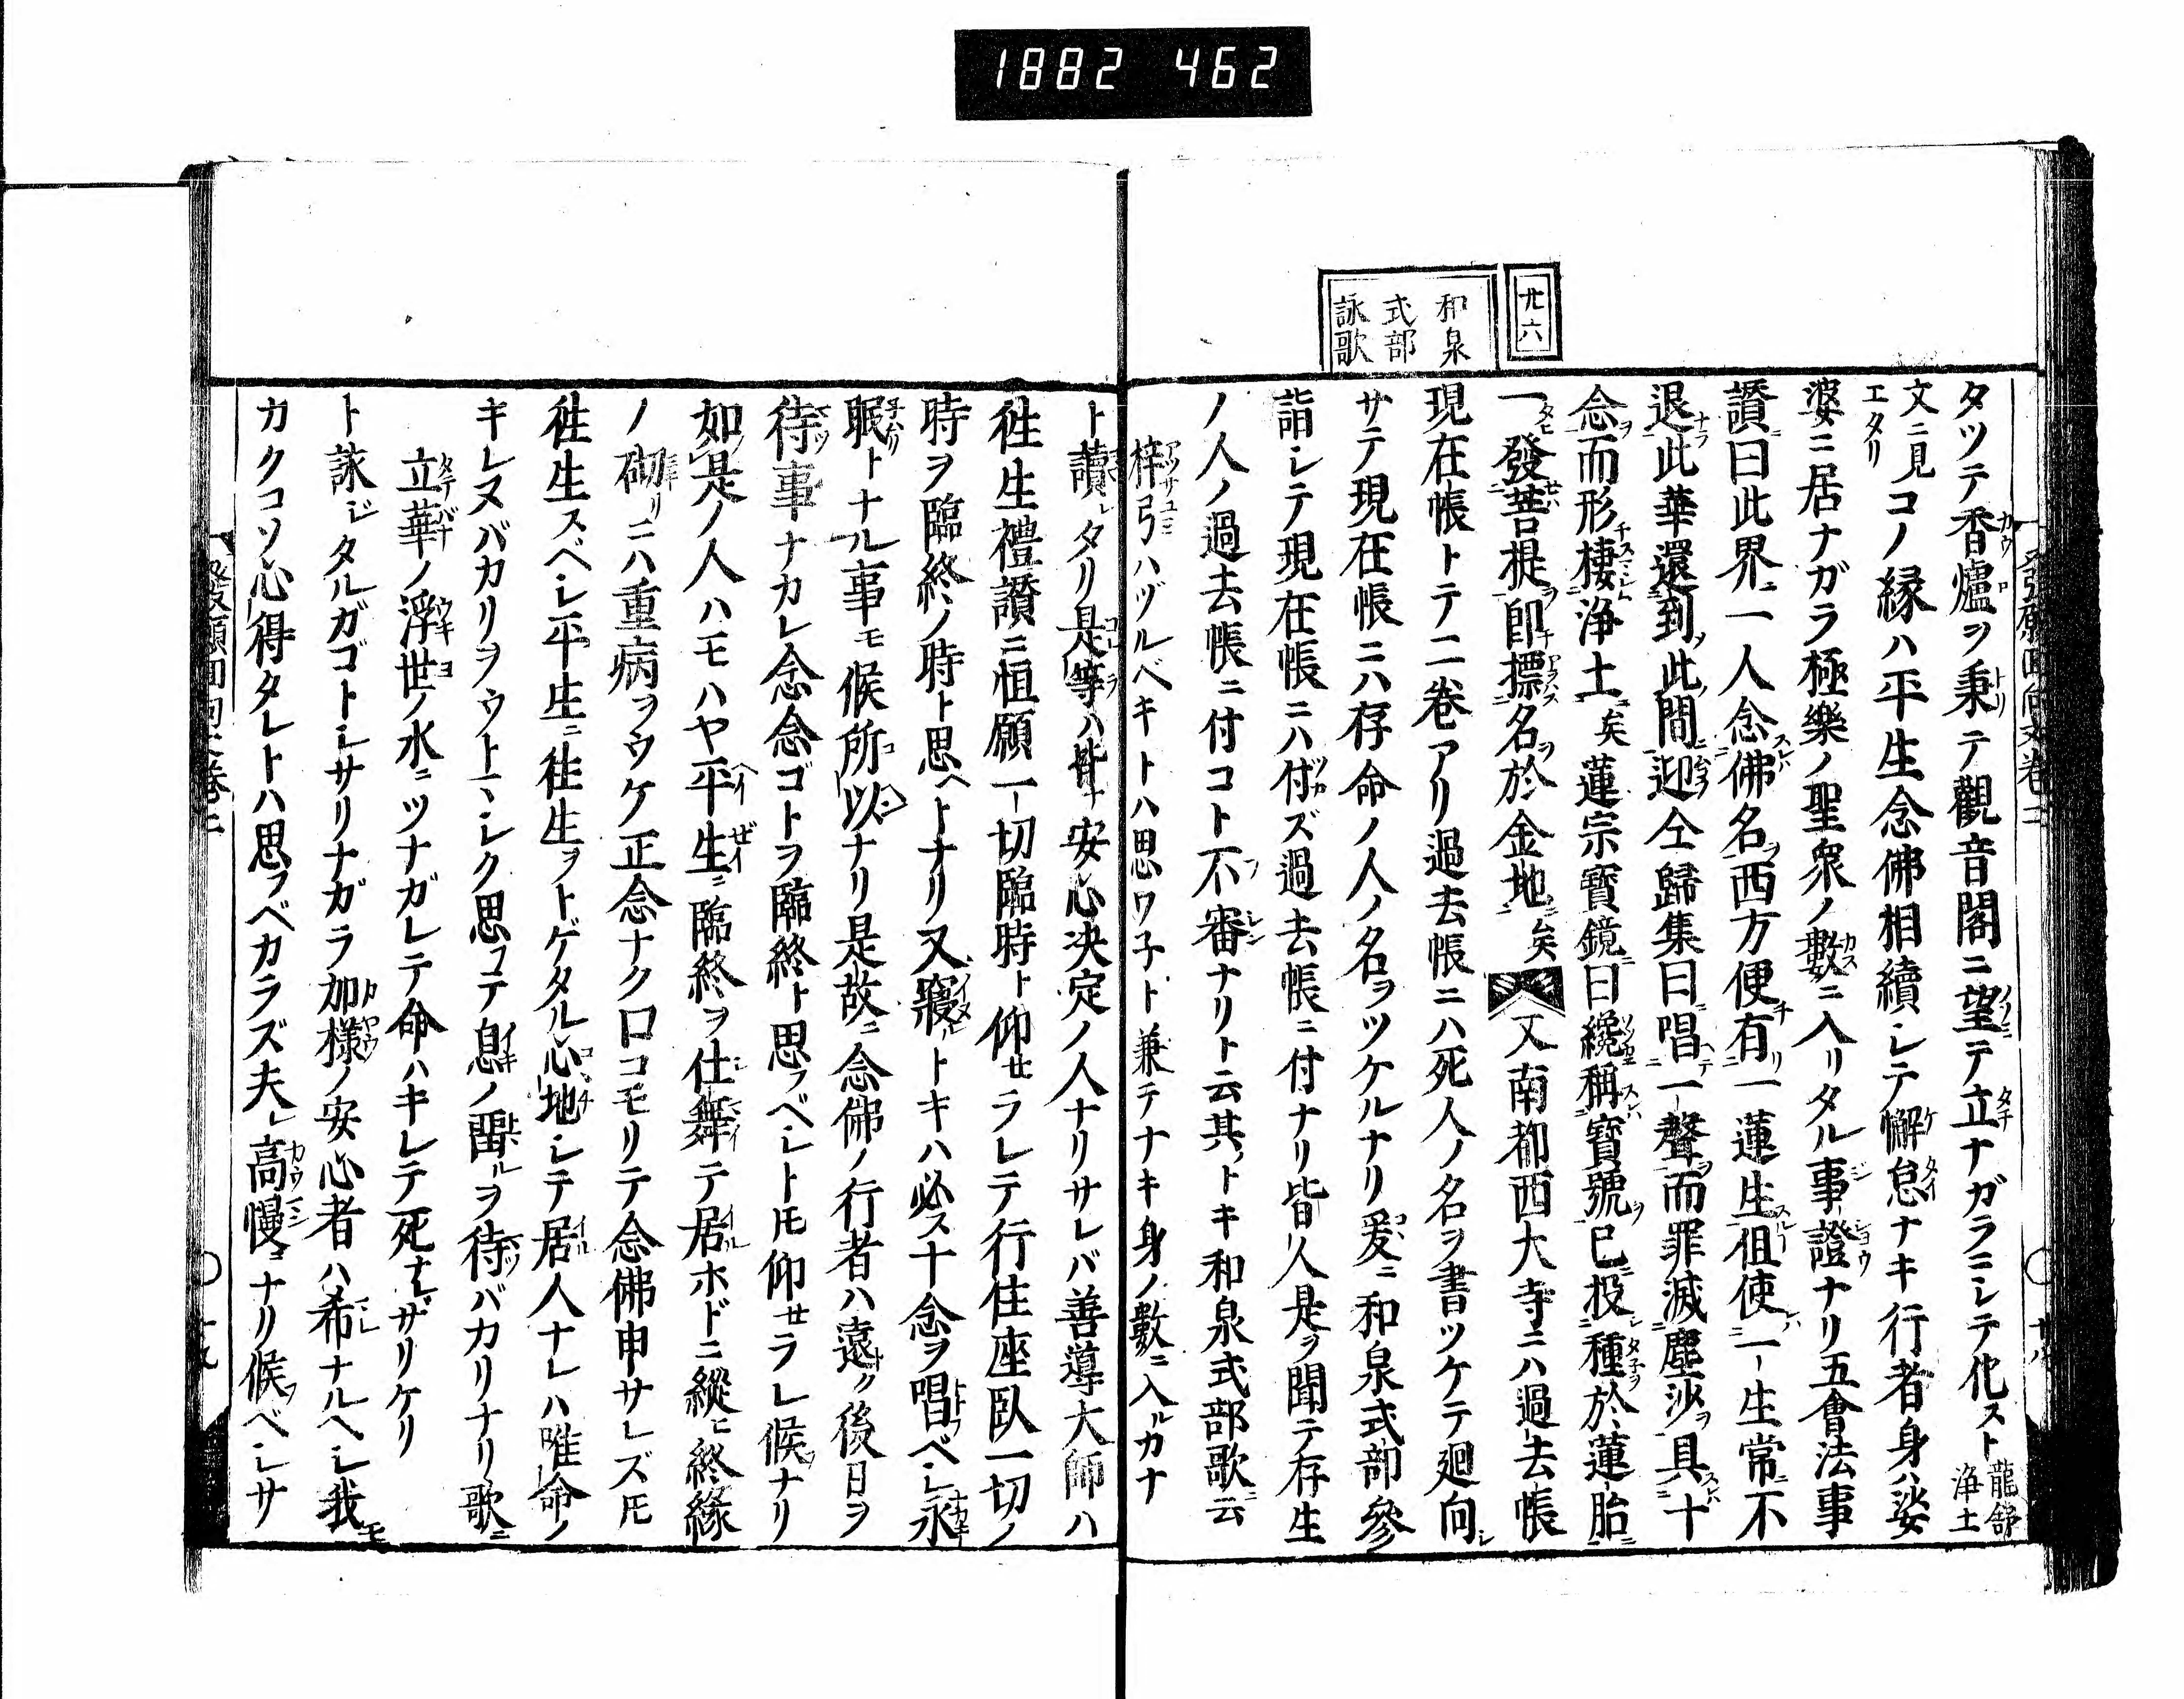 1882 462
廿六
和泉
式部
詠歌
タツテ香爐ヲ秉テ觀音閣ニ望テ立ナガラニシテ化スト龍舒浄土
文ニ見エタリコノ縁ハ平生念佛相續シテ懈怠ナキ行者身ハ娑
婆ニ居ナガラ極樂ノ聖衆ノ數ニ入リタル事證ナリ五會法事
讃曰此界一人念佛名西方便有一蓮生但使一生常不
退此華還到此間迎仝歸集曰唱一聲而罪滅塵沙具十
念而形棲浄土矣蓮宗寳鏡曰纔稱寳號已投種於蓮胎
一發菩提即摽名於金地矣又南都西大寺ニハ過去帳
現在帳トテ二巻アリ過去帳ニハ死人ノ名ヲ書ツケテ廻向
サテ現在帳ニハ存命ノ人ノ名ヲツケルナリ爰ニ和泉式部參
詣シテ現在帳ニハ付ズ過去帳ニ付ナリ皆人是ヲ聞テ存生
ノ人ノ過去帳ニ付コト不審ナリト云其トキ和泉式部歌云
梓弓ハヅルベキトハ思ワ子ト兼テナキ身ノ數ニ入ルカナ
ト讀レタリ是等ハ皆安心决定ノ人ナリサレバ善導大師ハ
徃生禮讃ニ恒願一切臨時ト仰せラレテ行住座臥一切ノ
時ヲ臨終ノ時ト思ヘトナリ又寢トキハ必ス十念ヲ唱ベシ永
眠トナル事モ候所以ナリ是故ニ念佛ノ行者ハ遠ク後日ヲ
待事ナカレ念念ゴトヲ臨終ト思フベシトモ仰せラレ候ナリ
如是ノ人ハモハヤ平生ニ臨終ヲ仕舞テ居ホドニ縱ヒ終縁
ノ砌リニハ重病ヲウケ正念ナク口コモリテ念佛申サレズモ
徃生スベシ平生ニ徃生ヲトゲタル心地シテ居人ナレハ唯命ノ
キレヌバカリヲウトマシク思フテ息ノ閉ルヲ待バカリナリ歌ニ
立華ノ浮世ノ水ニツナガレテ命ハキレテ死ナザリケリ
ト詠ジタルガゴトシサリナガラ加様ノ安心者ハ希ナルヘシ我モ
カクコソ心得タレトハ思フベカラズ夫レ高慢ニナリ候フベシサ